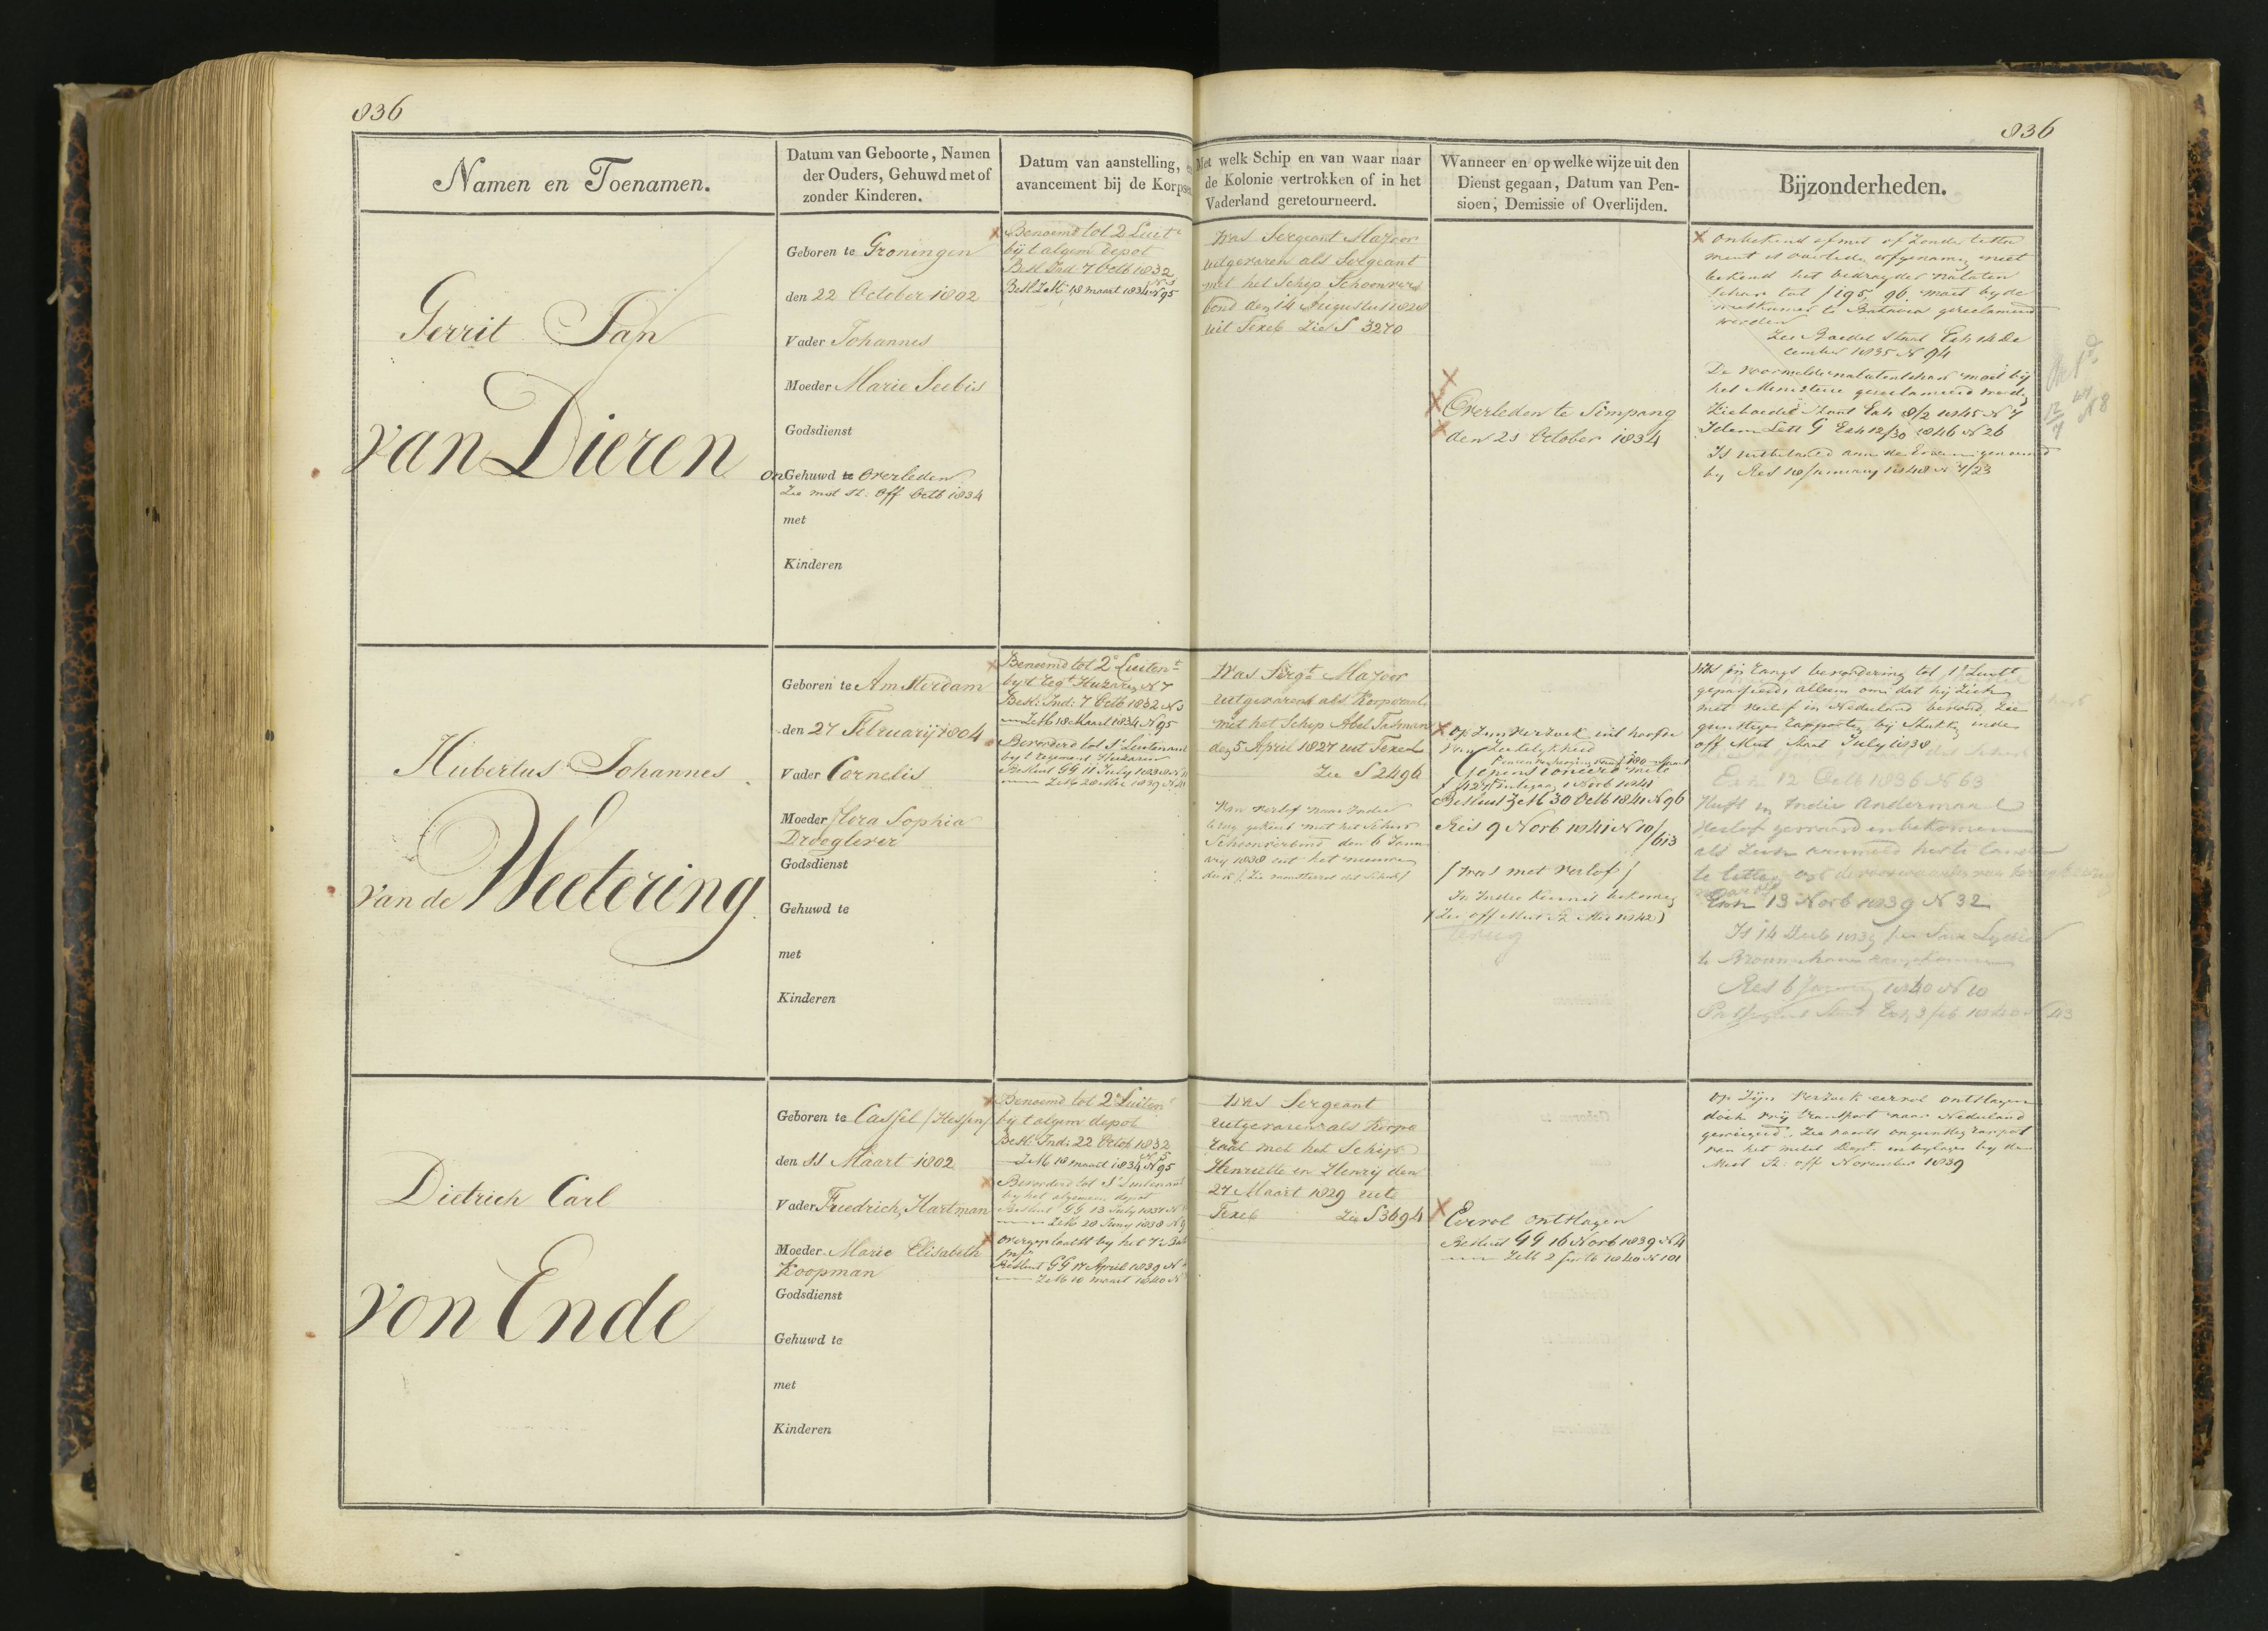 836
836
Namen en Toenamen.
Datum van Geboorte, Namen
der Ouders, Gehuwd met of
zonder Kinderen.
Datum van aanstelling, en
avancement bij de Korpsen
Met welk Schip en van waar naar
de Kolonie vertrokken of in het
Vaderland geretourneerd.
Wanneer en op welke wijze uit den
Dienst gegaan, Datum van Pen-
sioen, Demissie of Overlijden.
Bijzonderheden.
Gerrit Jan
van Dieren
Geboren te Groningen
den 22 October 1802
Vader Johannes
Moeder Marie Seebis
Godsdienst
onGehuwd te overleden
Zie mut st: off Octb 1834
met
Kinderen
Benoemd tot 2 Luitt
bij t algem depot
Besl Ind 7 Octb 1832
Besl ZM 18 maart 1834 N 95
Was Sergeant Majoor
uitgevaren als Sergeant
met het Schip Schoonver
bond den 14 Augustus 1828
uit Texel Zie S 3270
Overleden te Simpang
den 23 October 1834
onbekend of met of zonder testa
ment is overleden erfgenamen niet
bekend het bedrag der nalaten
schap tot f 195, 96 moet by de
weeskamer te Batavia gereclameerd
worden
Zie Boedel Staat Exh 14 De
cember 1835 N 94
De voormelde nalatenschap moet bij
het Ministerie gereclameerd word
Zie boedel Staat Exh 8/2 1845 N 7
Idem Lett G Exh 12/30 1846 N 26
Is uitbetaald aan de Erven
by Res 18 January 1848 N 7/23
N 8
Hubertus Johannes
van de Weetering
Geboren te Amsterdam
den 27 February 1804
Vader Cornelis
Moeder Flora Sophia
Drooglever
Godsdienst
Gehuwd te
met
Kinderen
Benoemd tot 2e Luitent
by t Regt Huzaren N 7
Besl: Ind: 7 Octb 1832 N 3
ZM 18 Maart 1834 N 95
Bevorderd tot 1e Luitenant
by t regiment Huzaren
Besluit GG 11 July 1838 N 11
ZM 28 Mei 1839 N
Was Sergt Majoor
uitgevaren als Korporaal
met het Schip Abel Tasman
den 5 April 1827 uit Texel
Zie S 2496
Van verlof naar Indie
terug gekeerd met het Schip
Schoonverbond den 6 Janu
ary 1838 uit het nieuwe
diep / Zie monsterrol dit Schip /
Op zijn verzoek uit hoofde
van Ziekelijkheid
gepensioneerd met
Besluit ZM 30 Octb 1841 N 96
Reis 9 Novb 1841 N 10/613
/ was met verlof /
In Indie kennis bekomen
/ Zie off Mut St Mei 1842 )
terug
gepasseerd, alleen om dat hij ziek
met verlof in Nederland bevond, Zie
gunstige rapporten bij Stukken inde
off Mut Staat July 1838
Exh 12 Octb 1836 N 63
Heeft in Indie andermaal
verlof gevraagd en bekomen
Exh 13 Novb 1839 N 32
Is 14 Decb 1839
te Brouwershaven aangekomen
Res 6 January 1840 N 10
Exh 3 feb 1840 N 43
Dietrich Carl
von Ende
Geboren te Cassel / Hessen /
den 11 Maart 1802
Vader Friedrich, Hartman
Moeder Marie Elisabeth
Koopman
Godsdienst
Gehuwd te
met
Kinderen
Benoemd tot 2e Luitent
bij t algem depot
Besl: Ind: 22 Octob 1832
ZM 18 maart 1834 N 95
Bevorderd tot 1e Luitenant
by het algemeen depot
Besluit GG 13 July 1837 N
ZM 28 Juny 1838 N 9
Overgeplaatst by het 7e Bat
Infr
Besluit GG 17 April 1839 N
ZM 10 maart 1840 N
Was Sergeant
uitgevaren als Korpo
raal met het Schip
Henriette en Henrij den
27 Maart 1829 uit
Texel Zie S 3694
Eervol ontslagen
Besluit GG 16 Novb 1839 N 4
ZM 2 1840 N 101
Op Zijn verzoek eervol ontslagen
doch vrij transport naar Nederland
geweigerd, Zie voorts ongunstig rapport
van het milit Dept. en bylagen by de
Mut St: off November 1839